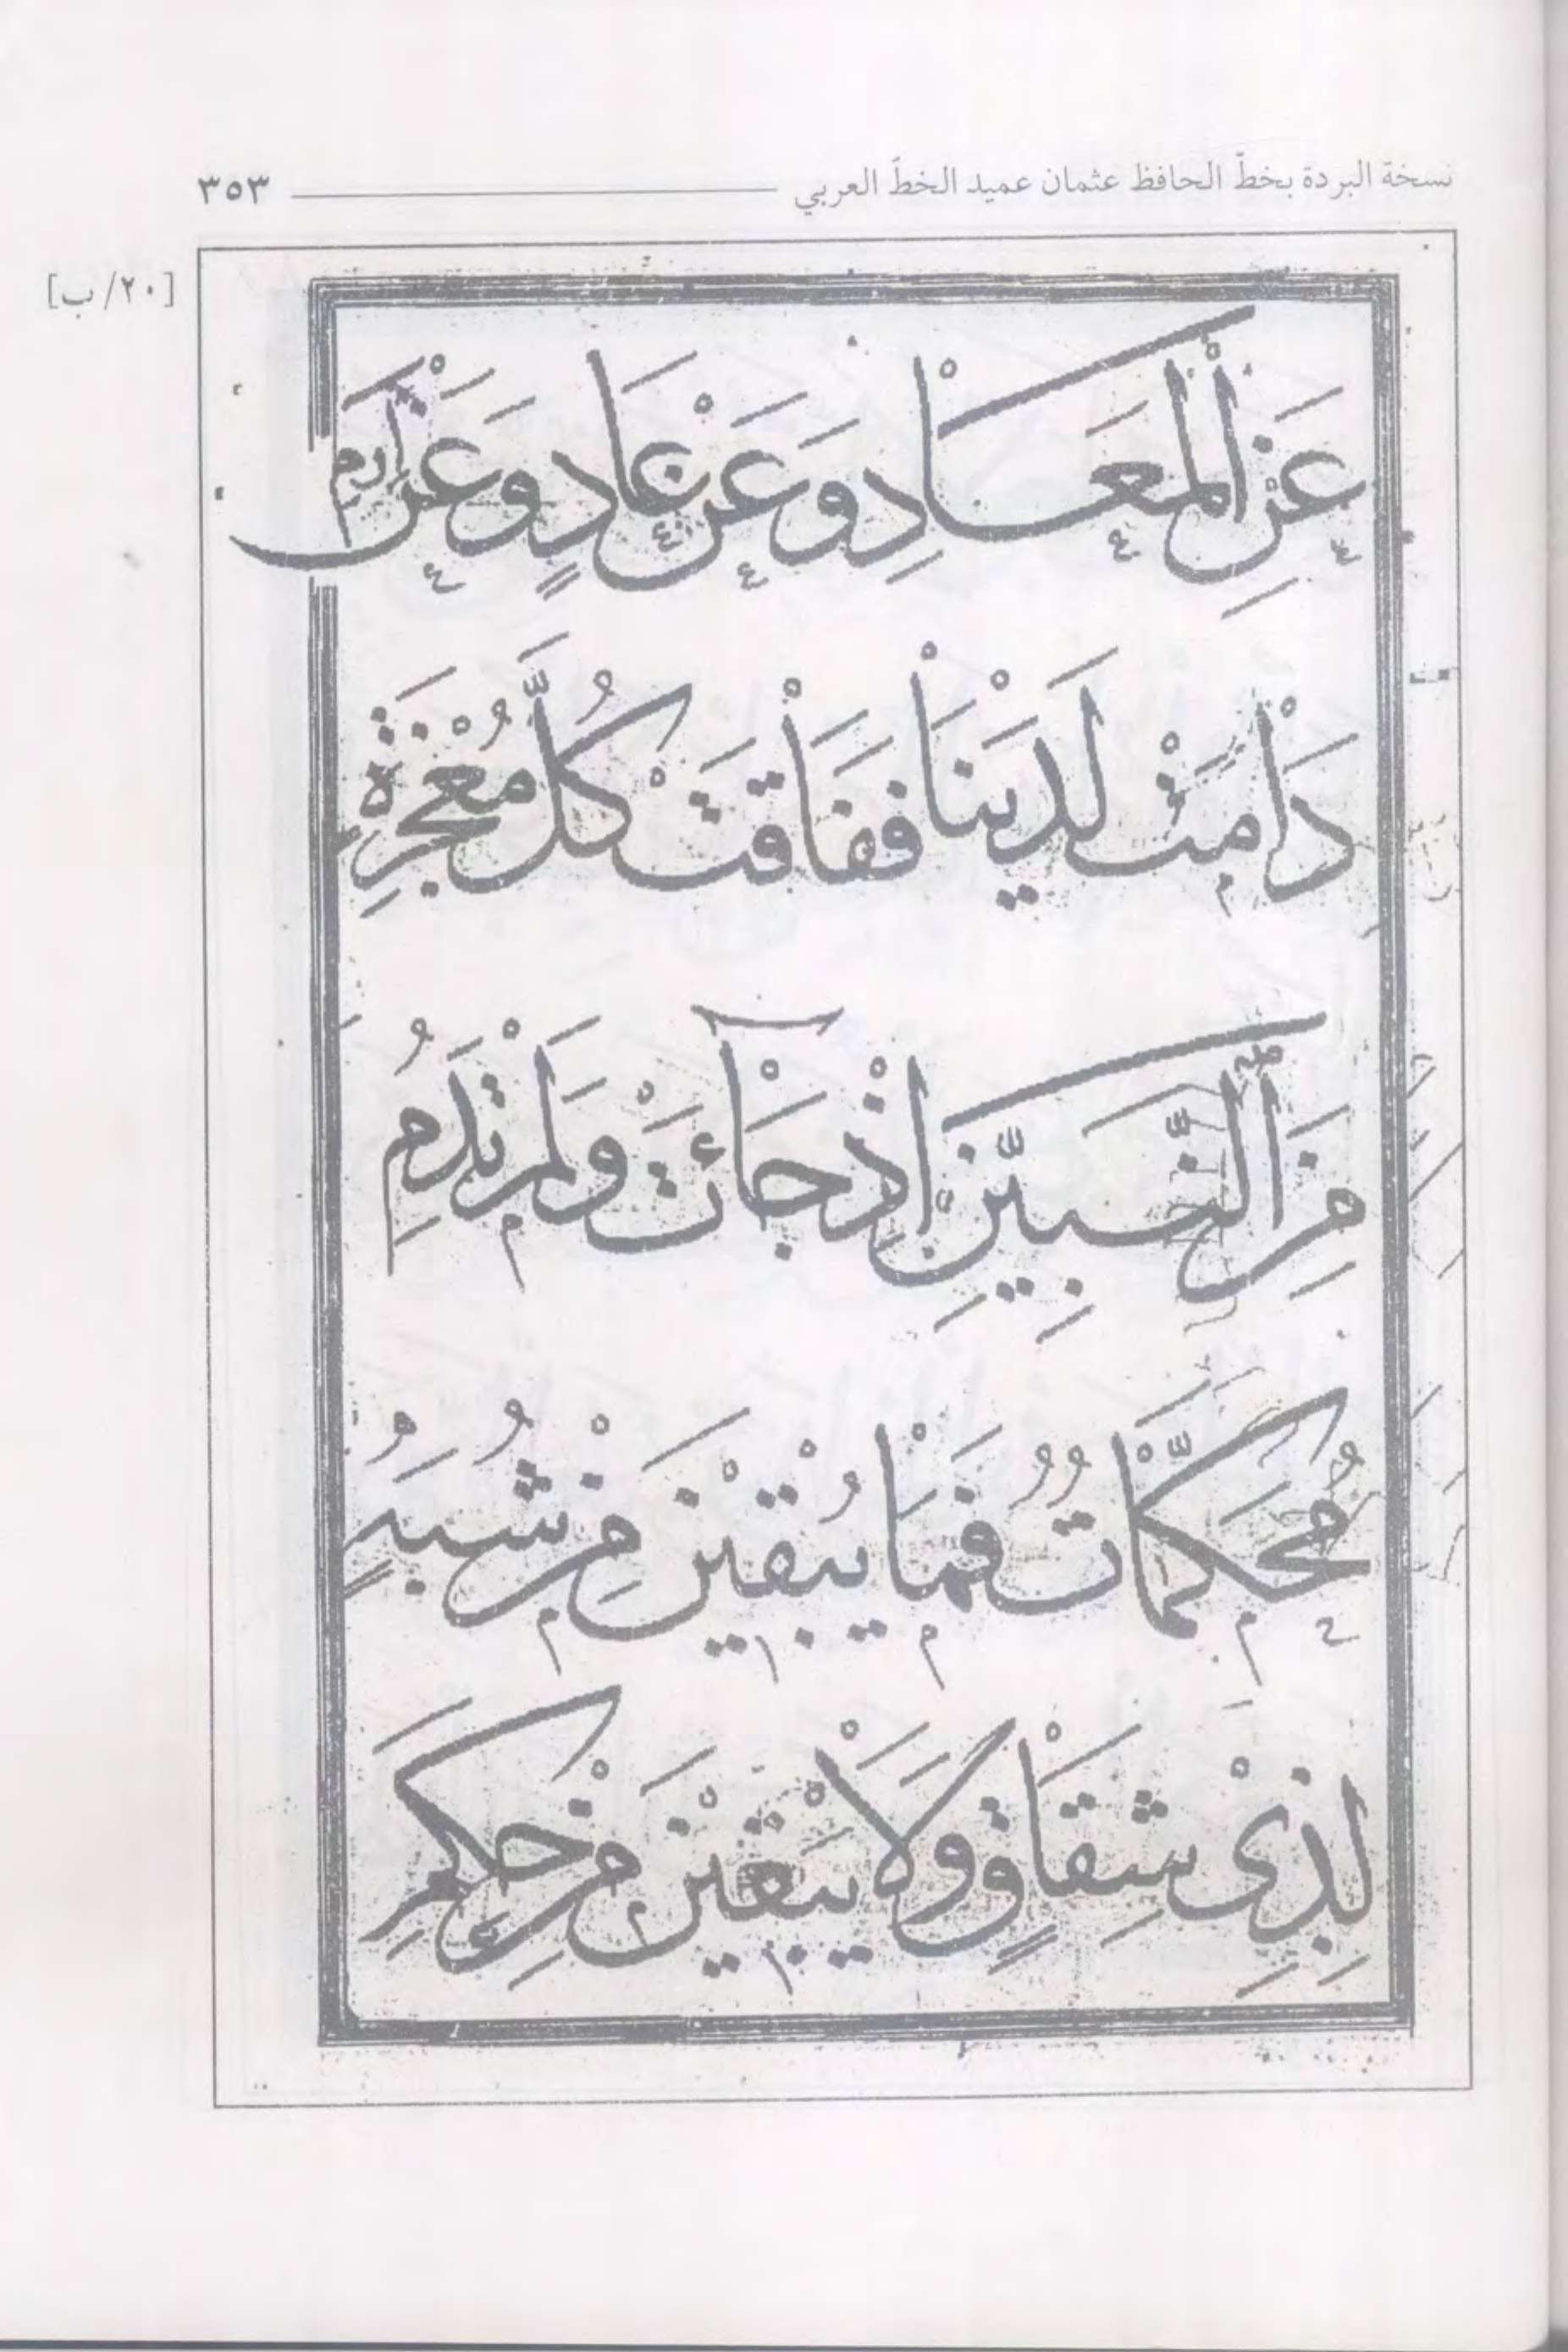 نسخة البردة بخطّ الحافظ عثمان عميد الخطّ العربي ٣٥٣
[٢٠/ب]
عَنِ الْمَعَادِ وَعَنْ عَادٍ وَعَنْ إِرَمِ
دَامَتْ لَدَيْنَا فَفَاقَتْ كُلَّ مُعْجِزَةٍ
مِنَ النَّبِيِّينَ إِذْ جَآئَتْ وَلَمْ تَدُمِ
مُحَكَّمَاتٌ فَمَا يُبْقِيْنَ مِنْ شُبَهٍ
لِذِىْ شِقَاقٍ وَلَا يَبْغِيْنَ مِنْ حَكَمِ